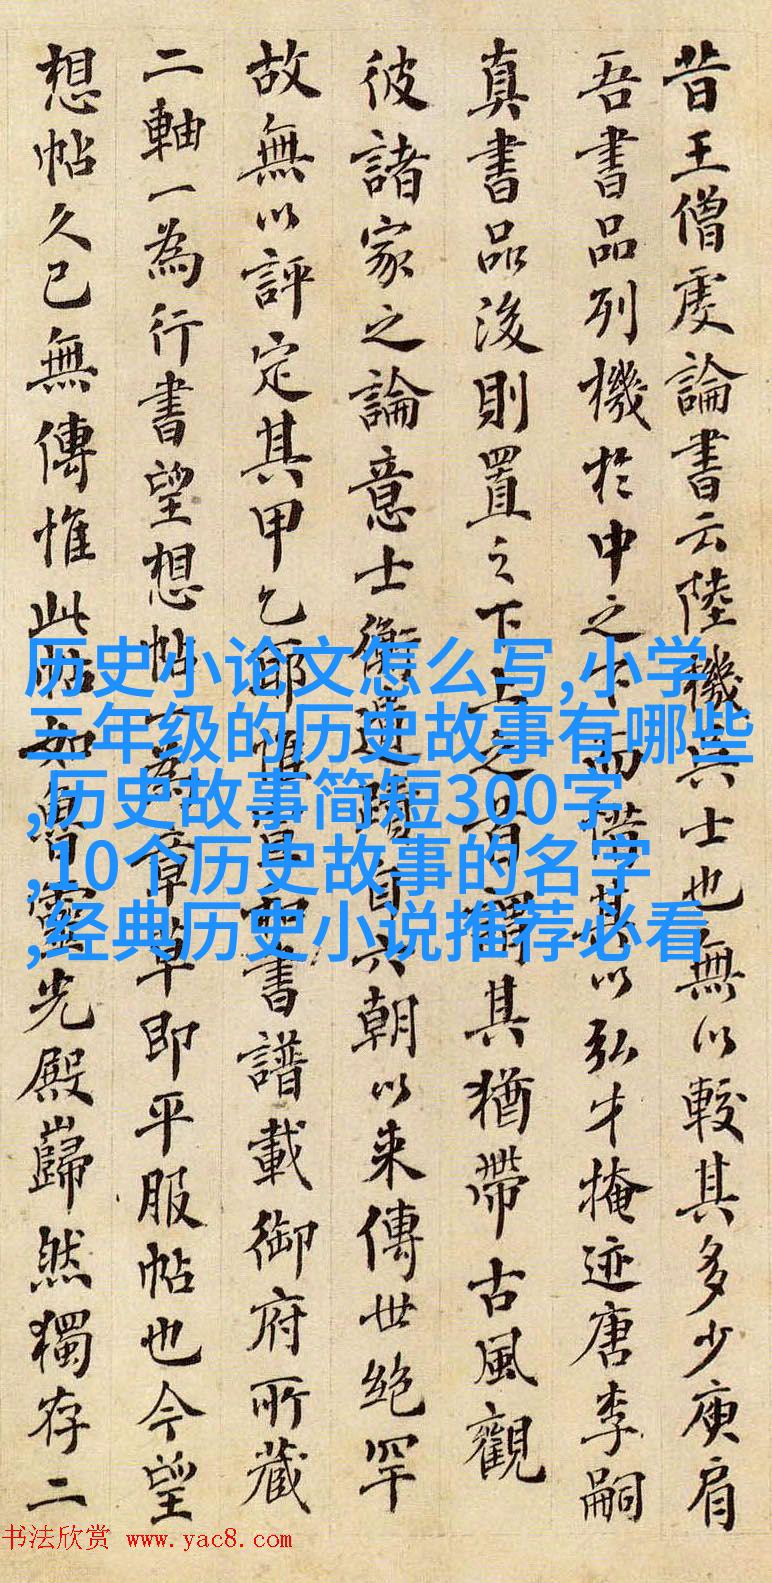 昔王僧虔論書云陸機吳士也無以較其多少庾肩
吾書品列機於中之下而惜其以弘才掩迹唐李嗣
真書品後則置之下上之首謂其猶帶古風觀
彼諸家之論意士衡遺蹟自六朝以来傳世絶罕
故無以評定其甲乙耶惟宣和書譜載御府所藏
二軸一為行書望想帖一為章草即平服帖也今望
想帖久已無傳惟此帖如魯靈光殿巋然獨存二
历史小论文怎么写,小学
三年级的历史故事有哪些
,历史故事简短300字
,10个历史故事的名字
,经典历史小说推荐必看
书法欣赏 www.yac8.com